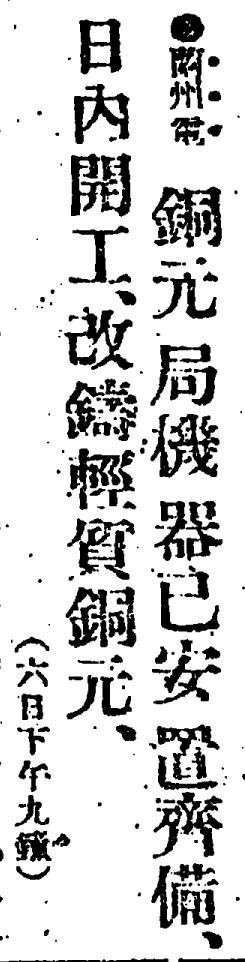 ●蘭州電 銅元局機器已安置齊備、
日內開工、改鑄輕質銅元、
（六日下午九鐘）